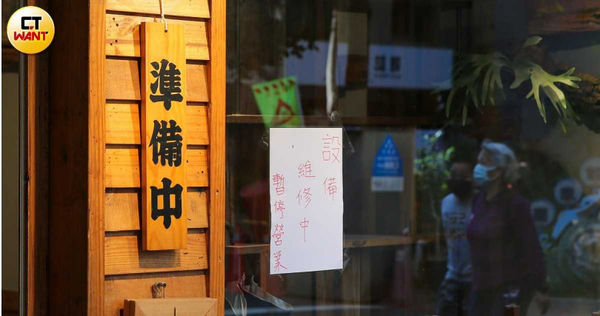 CT
WANT
準備中
設備
維修中
暫停營業